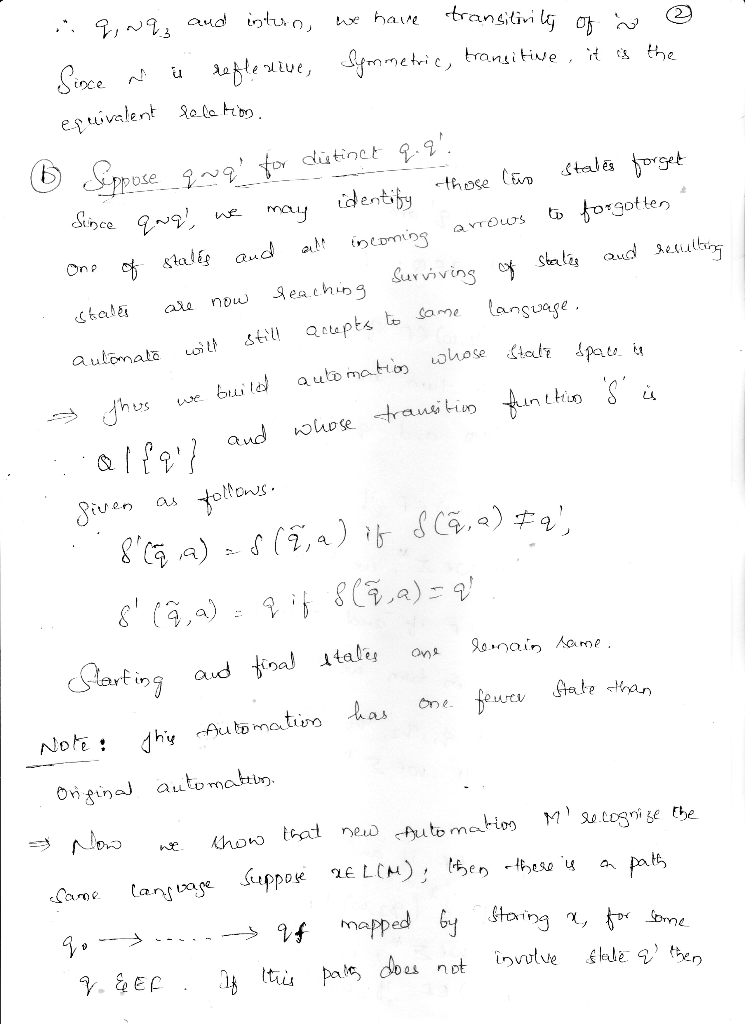 ∴ q₁~q₃ and inturn, we have transitivity of ~ ②
Since ~ is reflexive, Symmetric, transitive, it is the
equivalent relation.
ⓑ Suppose q~q' for distinct q.q'.
Since q~q', we may identify those two states forget
one of states and all incoming arrows to forgotten
states are now reaching surviving of states and resulting
automata will still accepts to same language.
⇒ Thus we build automation whose state space is
Q|{q'} and whose transition function 'δ' is
given as follows.
δ'(q̃,a) = δ(q̃,a) if δ(q̃,a) ≠ q',
δ'(q̃,a) = q if δ(q̃,a) = q'
Starting and final states one remain same.
Note: This Automation has one fewer state than
original automation.
⇒ Now we show that new Automation M' recognize the
same language suppose x∈L(M); then there is a path
q₀ → ..... → qf mapped by x, for some
q. If this path does not involve state q' then